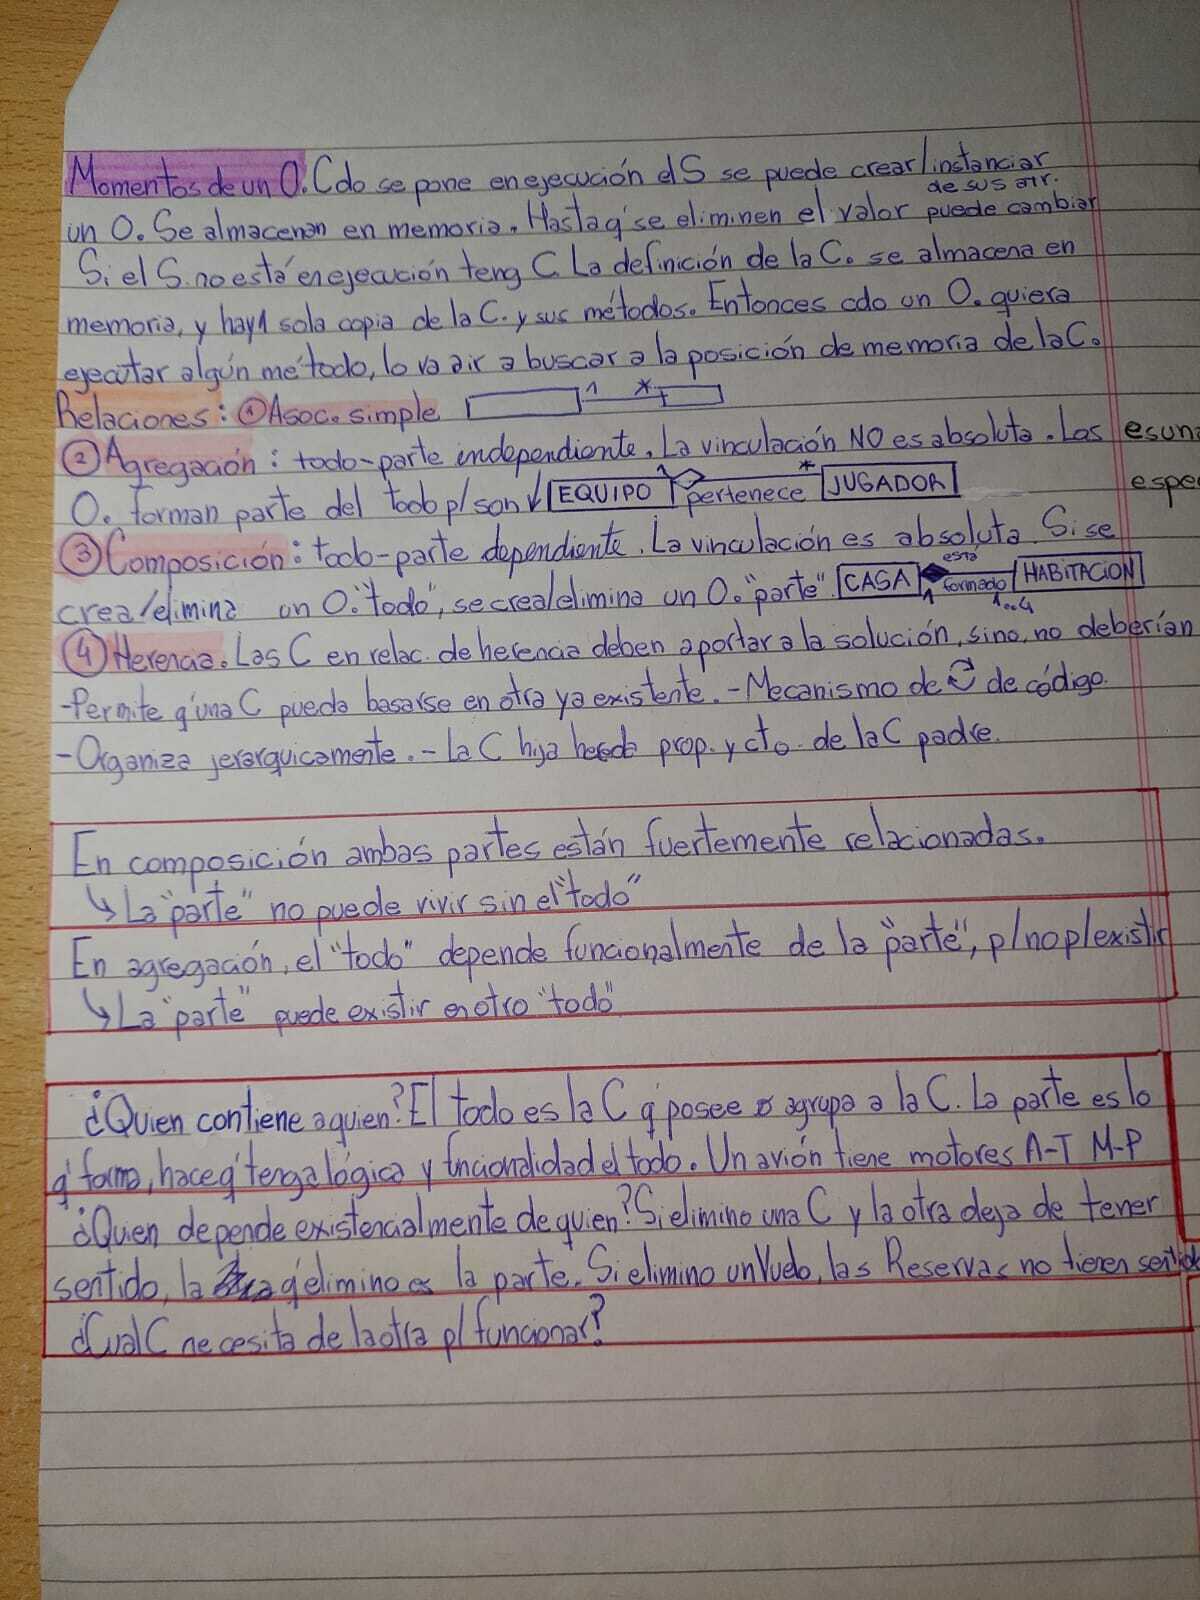 Momentos de un O. Cdo se pone en ejecución el S se puede crear/instanciar
de sus atr.
un O. Se almacenan en memoria. Hasta q' se eliminen el valor puede cambiar
Si el S. no está en ejecución teng C. La definición de la C. se almacena en
memoria, y hay 1 sola copia de la C. y sus métodos. Entonces cdo un O. quiera
ejecutar algún método, lo va a ir a buscar a la posición de memoria de la C.
Relaciones: ① Asoc. simple 1 *
② Agregación: todo-parte independiente. La vinculación NO es absoluta. Los es una
O. forman parte del todo p/ son ↓ EQUIPO 1 pertenece * JUGADOR espe
③ Composición: todo-parte dependiente. La vinculación es absoluta. Si se
crea/elimina un O. "todo", se crea/elimina un O. "parte". CASA 1 está formado 1..4 HABITACION
④ Herencia. Las C en relac. de herencia deben aportar a la solución, sino, no deberían
-Permite q' una C pueda basarse en otra ya existente. - Mecanismo de de código.
- Organiza jerarquicamente. - La C hija hereda prop. y cto. de la C padre.
En composición ambas partes están fuertemente relacionadas.
↳ La "parte" no puede vivir sin el "todo"
En agregación, el "todo" depende funcionalmente de la "parte", p/ no p/ existir
↳ La "parte" puede existir en otro "todo"
¿Quien contiene a quien? El todo es la C q' posee o agrupa a la C. La parte es lo
q' forma, hace q' tenga lógica y funcionalidad el todo. Un avión tiene motores A-T M-P
¿Quien depende existencialmente de quien? Si elimino una C y la otra deja de tener
sentido, la q' elimino es la parte. Si elimino un Vuelo, las Reservas no tienen sentido
¿Cual C necesita de la otra p/ funcionar?